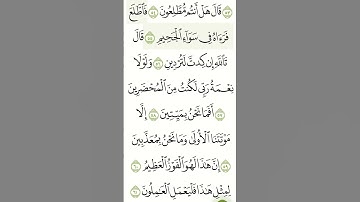 ﴿٥٣﴾ قَالَ هَلْ أَنتُم مُّطَّلِعُونَ ﴿٥٤﴾ فَٱطَّلَعَ
فَرَءَاهُ فِى سَوَآءِ ٱلْجَحِيمِ ﴿٥٥﴾ قَالَ
تَٱللَّهِ إِن كِدتَّ لَتُرْدِينِ ﴿٥٦﴾ وَلَوْلَا
نِعْمَةُ رَبِّى لَكُنتُ مِنَ ٱلْمُحْضَرِينَ
﴿٥٧﴾ أَفَمَا نَحْنُ بِمَيِّتِينَ ﴿٥٨﴾ إِلَّا
مَوْتَتَنَا ٱلْأُولَىٰ وَمَا نَحْنُ بِمُعَذَّبِينَ
﴿٥٩﴾ إِنَّ هَٰذَا لَهُوَ ٱلْفَوْزُ ٱلْعَظِيمُ ﴿٦٠﴾
لِمِثْلِ هَٰذَا فَلْيَعْمَلِ ٱلْعَٰمِلُونَ ﴿٦١﴾